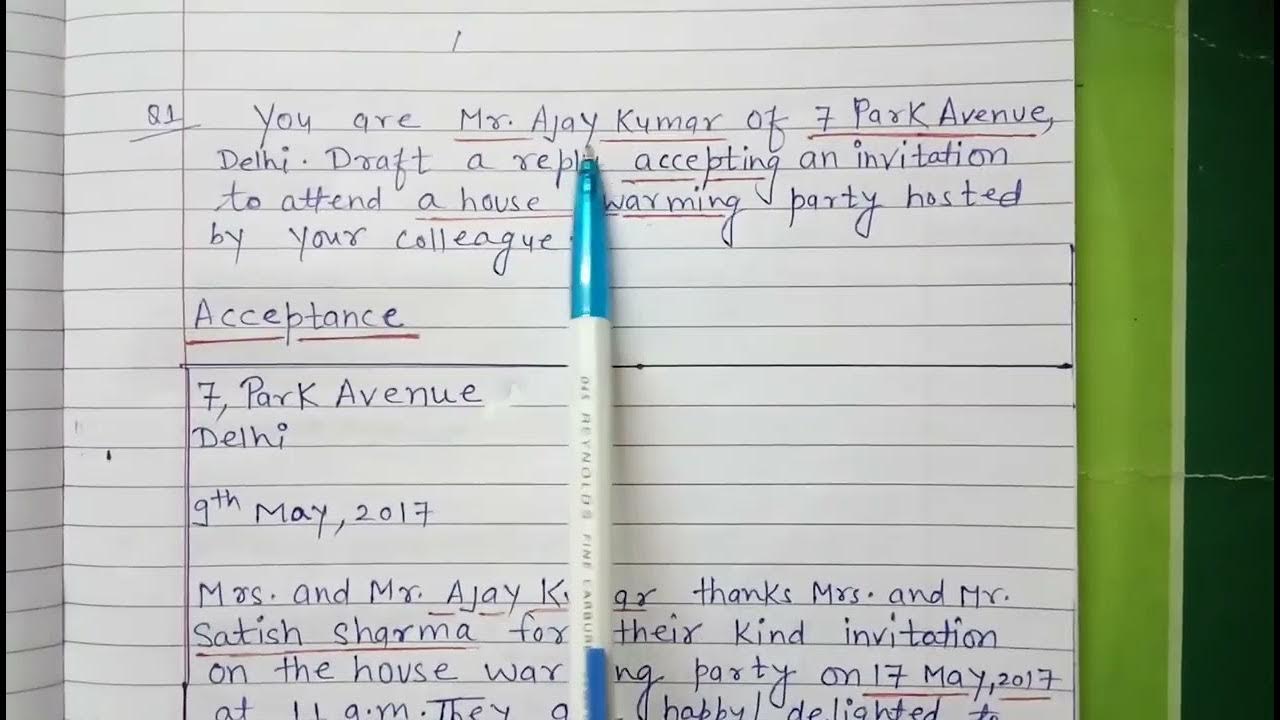 Q1 You are Mr. Ajay Kumar of 7 Park Avenue,
Delhi. Draft a reply accepting an invitation
to attend a house warming party hosted
by your colleague
Acceptance
7, Park Avenue
Delhi
9th May, 2017
Mrs. and Mr. Ajay Kumar thanks Mrs. and Mr.
Satish Sharma for their kind invitation
on the house warming party on 17 May, 2017
at 11 a.m. They happy/ delighted to
045 REYNOLDS FINE CARBURE